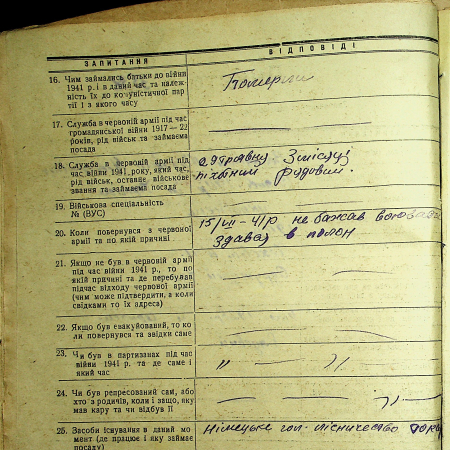 ЗАПИТАННЯ ВІДПОВІДІ
16. Чим займались батьки до війни
1941 р. і в даний час та належ-
ність їх до комуністичної пар-
тії і з якого часу
Померли
17. Служба в червоній армії під час
громадянської війни 1917—22
років, рід військ та займаєма
посада
18. Служба в червоній армії під
час війни 1941 року, який час,
рід військ, останнє військове
звання та займаєма посада
3 місяці
рядовим.
19. Військова спеціальність
№ (ВУС)
20. Коли повернувся з червоної
армії та по якій причині
15/VII - 41 р не бажав воювати
здавсь в полон
21. Якщо не був в червоній армії
під час війни 1941 р., то по
якій причині та де перебував
підчас відходу червоної армії
(чим може підтвердити, а коли
свідками то їх адреса)
22. Якщо був евакуйований, то ко-
ли повернувся та звідки саме
23. Чи був в партизанах під час
війни 1941 р. та де саме і
який час
24. Чи був репресований сам, або
хто з родичів, коли і защо, яку
мав кару та чи відбув її
25. Засоби існування в даний мо-
мент (де працює і яку займає
посаду)
Німецьке гол. лісничество